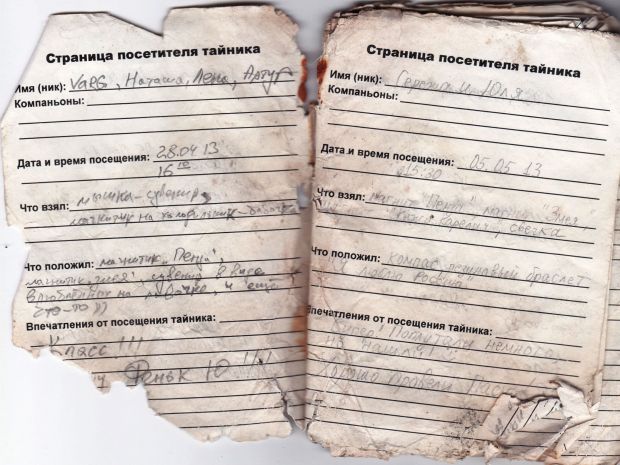 Страница посетителя тайника
Имя (ник): VaRG, Наташа, Лена, Артур
Компаньоны:
Дата и время посещения: 28.04.13
16 00
Что взял: мышка-сувенир,
магнитик на холодильник
Что положил: магнитик "Пенза",
магнитик "змея", сувенир в виде
влюблённых на лавочке, и ещё
что-то))
Впечатления от посещения тайника:
Класс!!!
Ю !!!
Страница посетителя тайника
Имя (ник): Серёжа и Юля
Компаньоны:
Дата и время посещения: 05.05 13
15:30
Что взял: магнит "Пенза", магнит "Змея",
свечка
Что положил: компас, резиновый браслет
"Я люблю Россию"
Впечатления от посещения тайника:
Поплутали немного
но нашли!
Хорошо провели